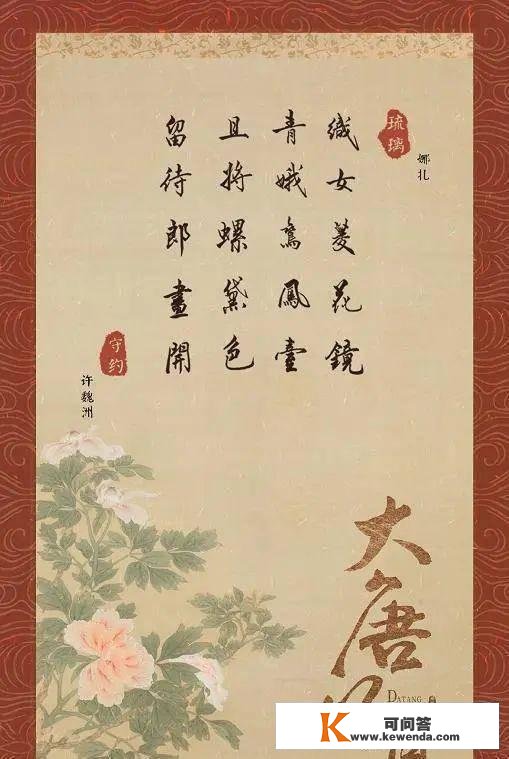 琉璃
娜扎
織女菱花鏡
青娥鸞鳳臺
且将螺黛色
留待郎畫開
守约
许魏洲
大唐
DATANG
K 可问答
www.kewenda.com